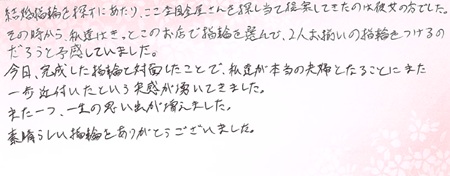 結婚指輪を探すにあたり、ここ杢目金屋さんを探し当て提案してきたのは彼女の方でした。
その時から、私達はきっとこのお店で指輪を選んで、2人お揃いの指輪をつけるの
だろうと予感していました。
今日、完成した指輪と対面したことで、私達が本当の夫婦となることにまた
一歩近付いたという実感が湧いてきました。
また一つ、一生の思い出が増えました。
素晴らしい指輪をありがとうございました。